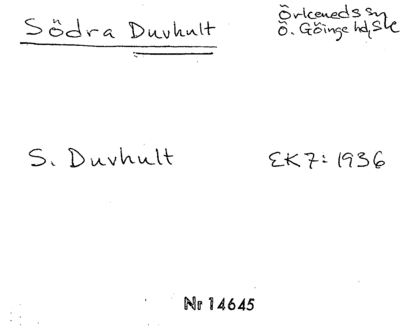 Södra Duvhult
Örkeneds sn
Ö. Göinge hd, Sk
S. Duvhult
EK 7: 1936
Nr 14645